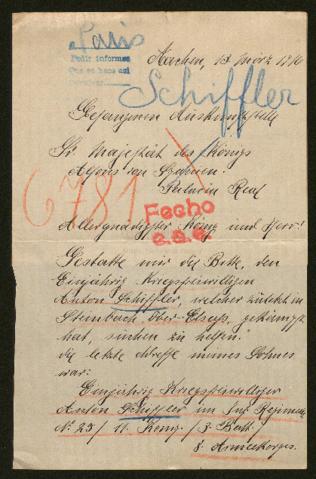 a Paris
Pedir informes
Que se hace así
Aachen, 13 März 1916
Schiffler
Gefangenen Auskunftstelle
Sr Majestät des Königs
Alfons von Spanien
Palacio Real
6781
Fecho
Allergnädigster König und Herr!
Gestatte mir die Bitte, den
Einjährig Kriegsfreiwilligen
Anton Schiffler, welcher zuletzt in
Steinbach, Ober-Elsaß, gekämpft
hat, suchen zu helfen.
die letzte Adresse meines Sohnes
war:
Einjährig Kriegsfreiwilliger
Anton Schiffler im Inf Regiment
No 25/ 11. Komp.
8. Armeekorps.